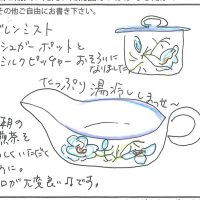 その他ご自由にお書き下さい。
レンミスト
シュガーポットと
ミルクピッチャー おそろいに
なりました
たっぷり
朝の
煎茶を
しくいただく
に。
口が大変良い」です。